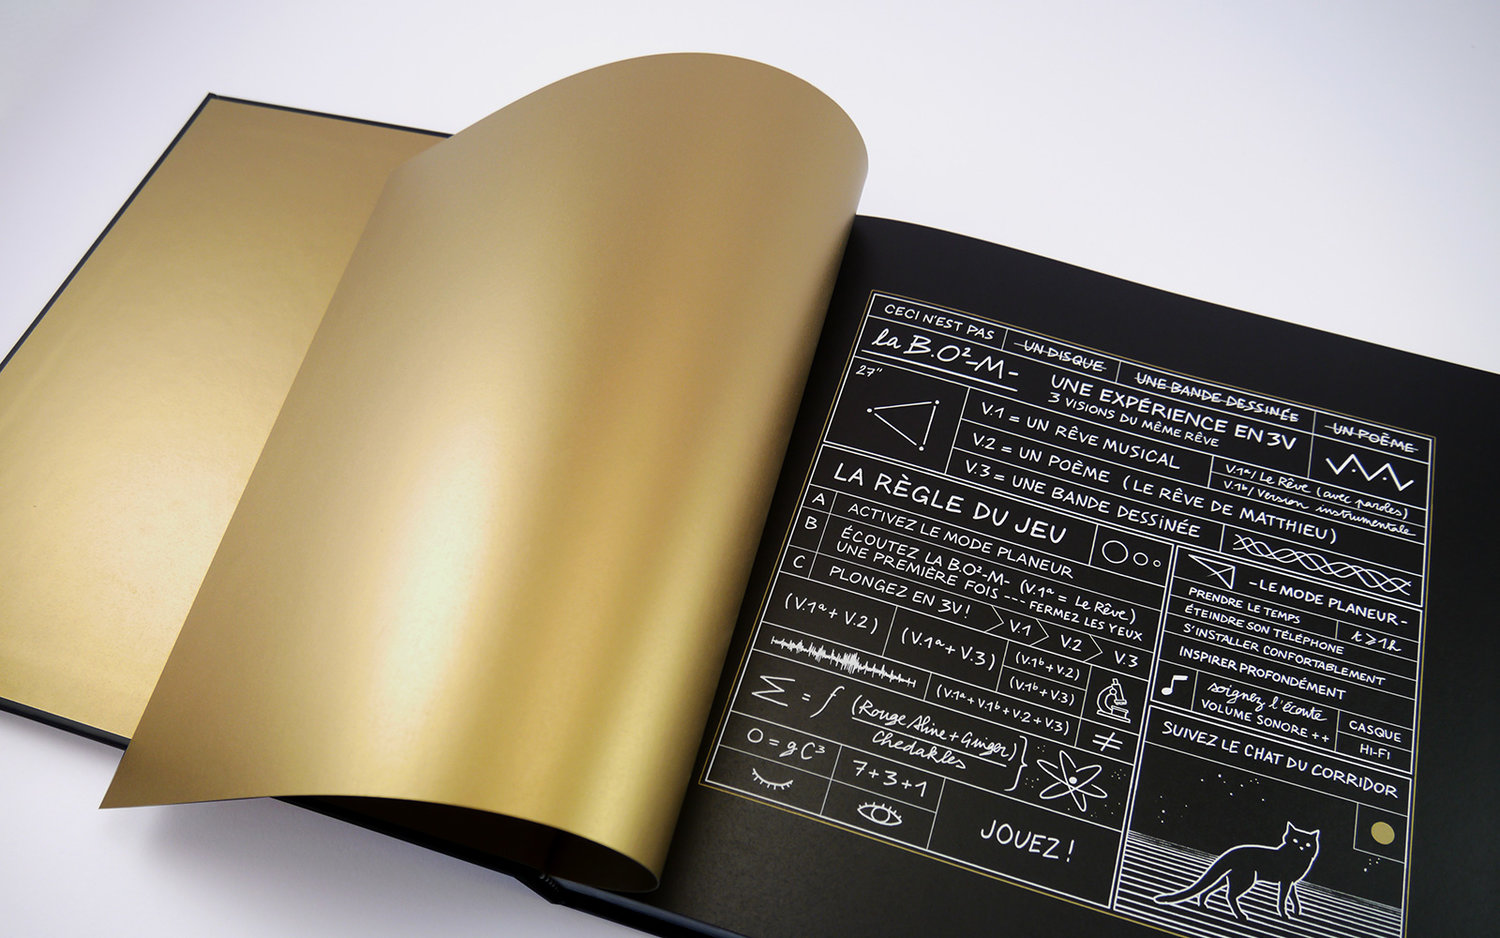 CECI N'EST PAS
UN DISQUE
UNE BANDE DESSINÉE
UN POÈME
la B.O²-M-
UNE EXPÉRIENCE EN 3V
3 VISIONS DU MÊME RÊVE
27"
V.1 = UN RÊVE MUSICAL
V.1ª/ Le Rêve (avec paroles)
V.1ᵇ/ Version instrumentale
V.2 = UN POÈME (LE RÊVE DE MATTHIEU)
V.3 = UNE BANDE DESSINÉE
LA RÈGLE DU JEU
A ACTIVEZ LE MODE PLANEUR
B ÉCOUTEZ LA B.O²-M- (V.1ª = Le Rêve)
UNE PREMIÈRE FOIS --- FERMEZ LES YEUX
C PLONGEZ EN 3V! V.1 V.2 V.3
(V.1ª + V.2)
(V.1ª + V.3)
(V.1ᵇ + V.2)
(V.1ᵇ + V.3)
(V.1ª + V.1ᵇ + V.2 + V.3)
Σ = f (Rouge Aline + Ginger)
Chedakles
≠
O = g C³
7+3+1
JOUEZ!
-LE MODE PLANEUR-
PRENDRE LE TEMPS
t ⩾ 1h
ÉTEINDRE SON TÉLÉPHONE
S'INSTALLER CONFORTABLEMENT
INSPIRER PROFONDÉMENT
soignez l'écoute
VOLUME SONORE ++
CASQUE
HI-FI
SUIVEZ LE CHAT DU CORRIDOR